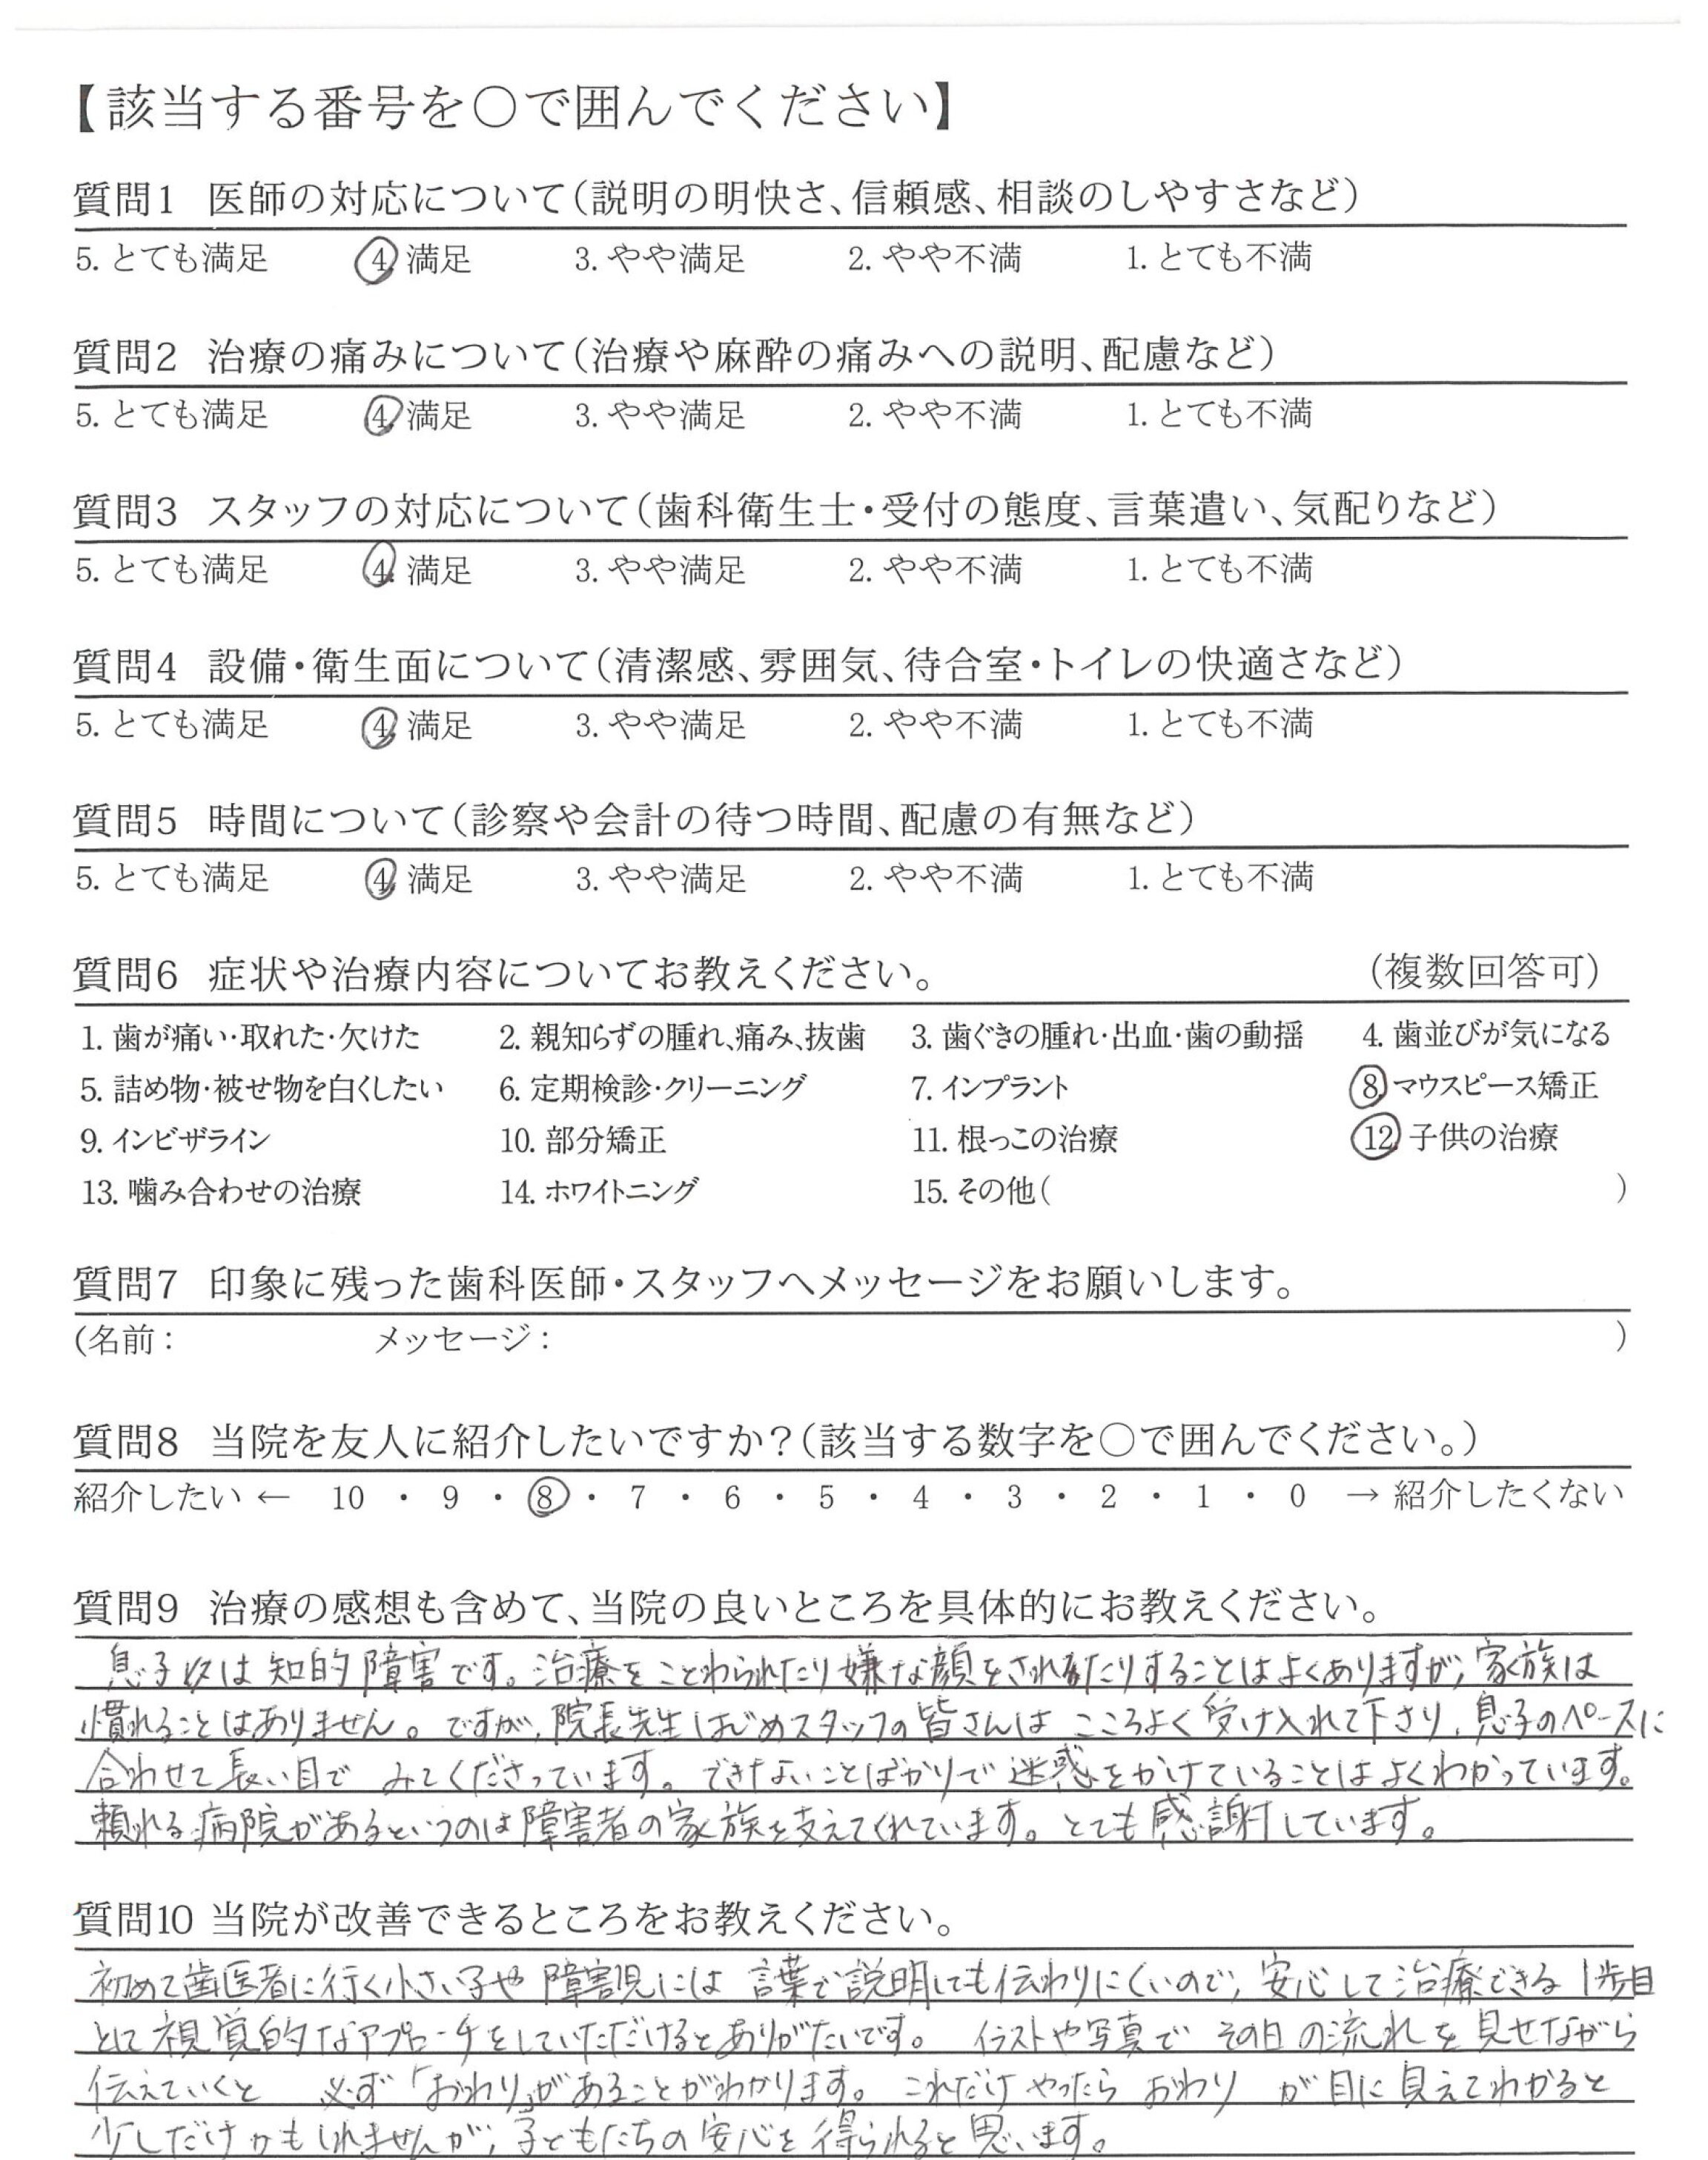 【該当する番号を○で囲んでください】
質問1 医師の対応について(説明の明快さ、信頼感、相談のしやすさなど)
5. とても満足 4. 満足 3. やや満足 2. やや不満 1. とても不満
質問2 治療の痛みについて(治療や麻酔の痛みへの説明、配慮など)
5. とても満足 4. 満足 3. やや満足 2. やや不満 1. とても不満
質問3 スタッフの対応について(歯科衛生士・受付の態度、言葉遣い、気配りなど)
5. とても満足 4. 満足 3. やや満足 2. やや不満 1. とても不満
質問4 設備・衛生面について(清潔感、雰囲気、待合室・トイレの快適さなど)
5. とても満足 4. 満足 3. やや満足 2. やや不満 1. とても不満
質問5 時間について(診察や会計の待つ時間、配慮の有無など)
5. とても満足 4. 満足 3. やや満足 2. やや不満 1. とても不満
質問6 症状や治療内容についてお教えください。 (複数回答可)
1. 歯が痛い・取れた・欠けた 2. 親知らずの腫れ、痛み、抜歯 3. 歯ぐきの腫れ・出血・歯の動揺 4. 歯並びが気になる
5. 詰め物・被せ物を白くしたい 6. 定期検診・クリーニング 7. インプラント 8. マウスピース矯正
9. インビザライン 10. 部分矯正 11. 根っこの治療 12. 子供の治療
13. 噛み合わせの治療 14. ホワイトニング 15. その他( )
質問7 印象に残った歯科医師・スタッフへメッセージをお願いします。
(名前: メッセージ: )
質問8 当院を友人に紹介したいですか?(該当する数字を○で囲んでください。)
紹介したい ← 10 ・ 9 ・ 8 ・ 7 ・ 6 ・ 5 ・ 4 ・ 3 ・ 2 ・ 1 ・ 0 → 紹介したくない
質問9 治療の感想も含めて、当院の良いところを具体的にお教えください。
息子は知的障害です。治療をことわられたり嫌な顔をされたりすることはよくありますが、家族は
慣れることはありません。ですが、院長先生はじめスタッフの皆さんはこころよく受け入れて下さり、息子のペースに
合わせて長い目でみてくださっています。できないことばかりで迷惑をかけていることはよくわかっています。
頼れる病院があるというのは障害者の家族を支えてくれています。とても感謝しています。
質問10 当院が改善できるところをお教えください。
初めて歯医者に行く小さい子や障害児には言葉で説明しても伝わりにくいので、安心して治療できる1歩目
として視覚的なアプローチをしていただけるとありがたいです。イラストや写真でその日の流れを見せながら
伝えていくと 必ず「おわり」があることがわかります。これだけやったらおわり が目に見えてわかると
少しだけかもしれませんが、子どもたちの安心を得られると思います。